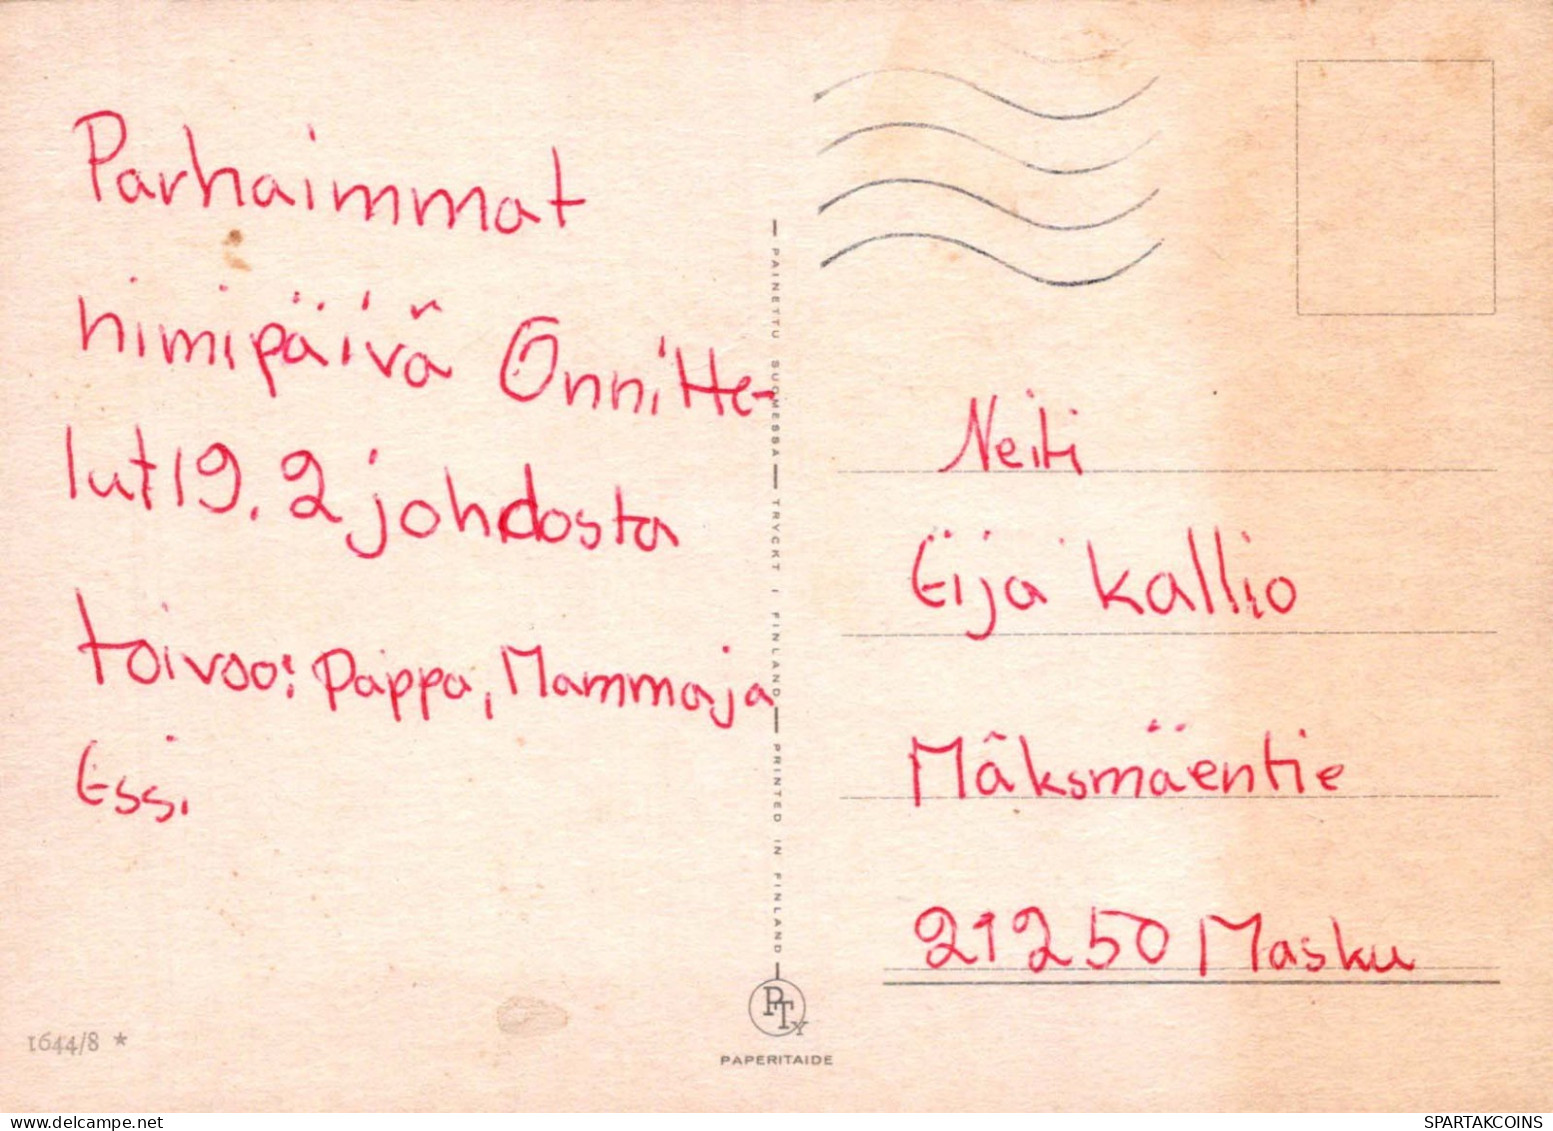 Parhaimmat
nimipäivä Onnitte-
lut 19.2 johdosta
toivoo: Pappa, Mamma ja
Essi.
Neiti
Eija Kallio
Mäksmäentie
21250 Masku
PAINETTU SUOMESSA — TRYCKT I FINLAND — PRINTED IN FINLAND
PTy
PAPERITAIDE
1644/8 *
SPARTAKCOINS